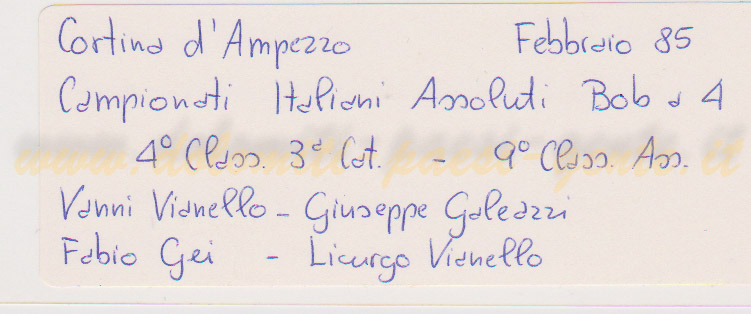 Cortina d'Ampezzo Febbraio 85
Campionati Italiani Assoluti Bob a 4
4° Class. 3ª Cat. - 9° Class. Ass.
Vanni Vianello - Giuseppe Galeazzi
Fabio Gei - Licurgo Vianello